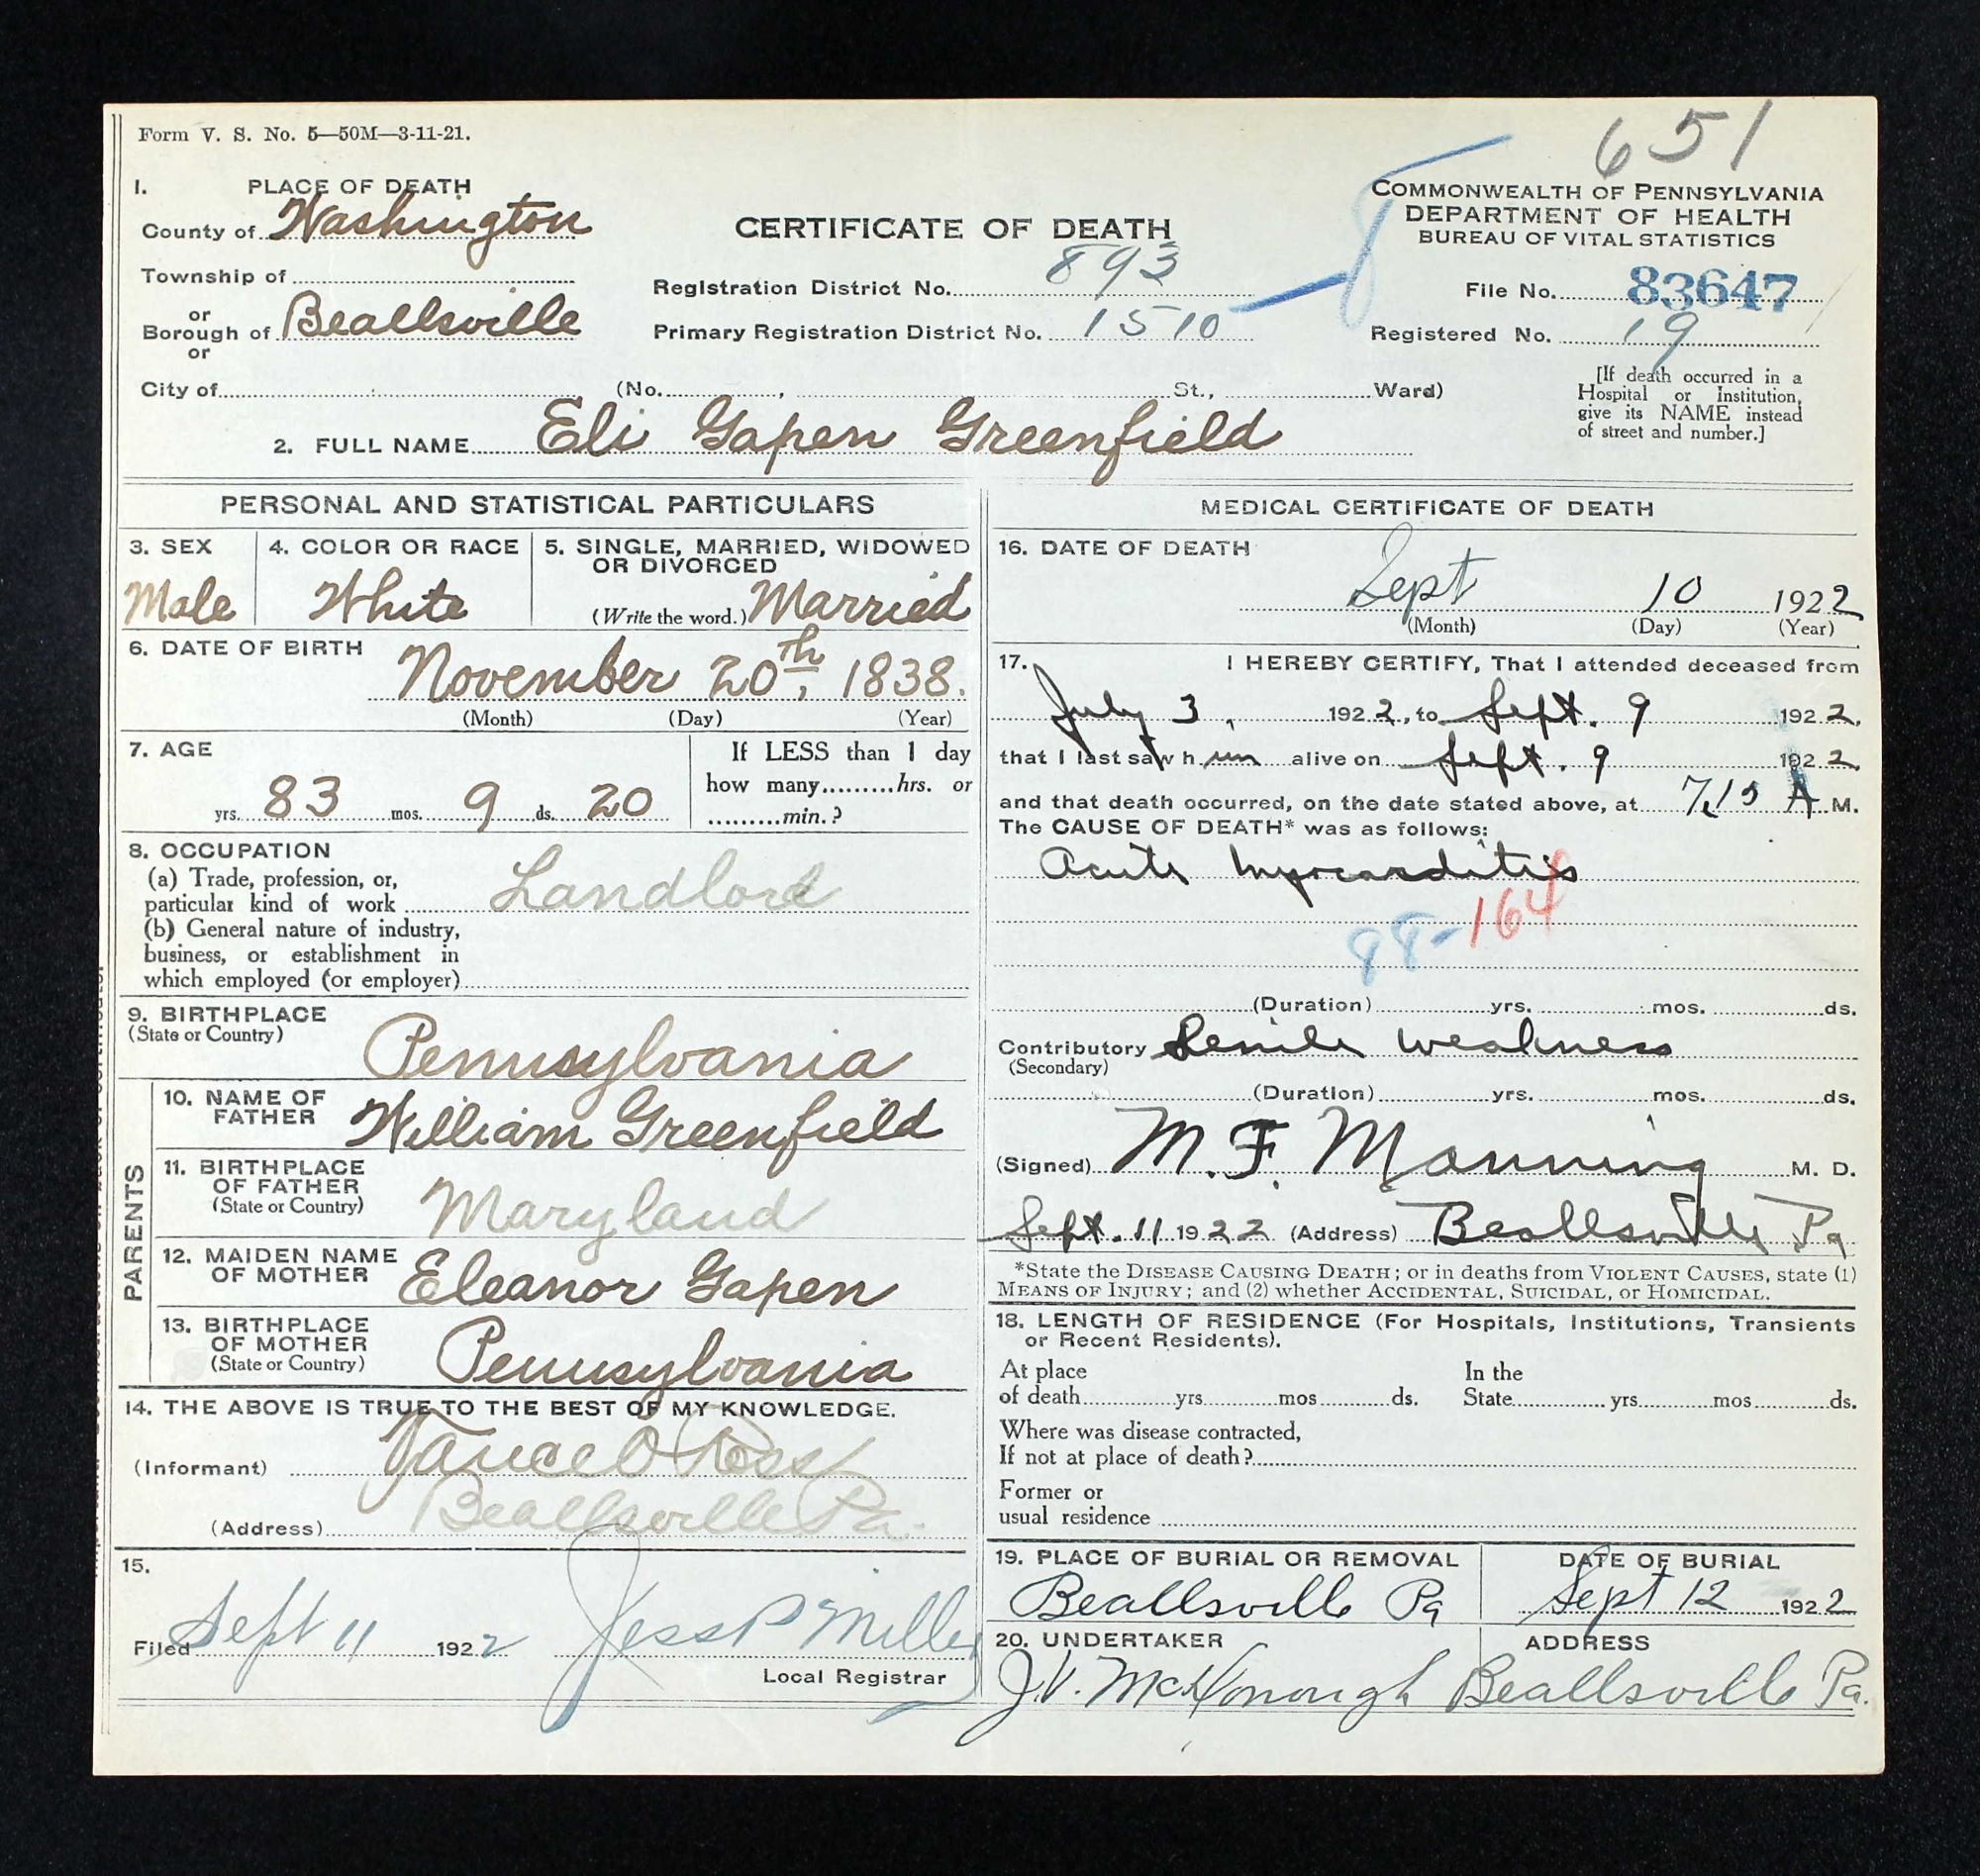 651
Form V. S. No. 5—50M—3-11-21.
1. PLACE OF DEATH
County of Washington
Township of
or
Borough of Beallsville
or
City of (No. , St., Ward)
CERTIFICATE OF DEATH
Registration District No. 893
Primary Registration District No. 1510
COMMONWEALTH OF PENNSYLVANIA
DEPARTMENT OF HEALTH
BUREAU OF VITAL STATISTICS
File No. 83647
Registered No. 19
[If death occurred in a
Hospital or Institution,
give its NAME instead
of street and number.]
2. FULL NAME Eli Gapen Greenfield
PERSONAL AND STATISTICAL PARTICULARS
3. SEX
Male
4. COLOR OR RACE
White
5. SINGLE, MARRIED, WIDOWED
OR DIVORCED
(Write the word.) Married
6. DATE OF BIRTH
November 20th, 1838.
(Month) (Day) (Year)
7. AGE
yrs. 83 mos. 9 ds. 20
If LESS than 1 day
how many hrs. or
min.?
8. OCCUPATION
(a) Trade, profession, or,
particular kind of work Landlord
(b) General nature of industry,
business, or establishment in
which employed (or employer)
9. BIRTHPLACE
(State or Country) Pennsylvania
PARENTS
10. NAME OF
FATHER William Greenfield
11. BIRTHPLACE
OF FATHER
(State or Country) Maryland
12. MAIDEN NAME
OF MOTHER Eleanor Gapen
13. BIRTHPLACE
OF MOTHER
(State or Country) Pennsylvania
14. THE ABOVE IS TRUE TO THE BEST OF MY KNOWLEDGE.
(Informant) Vance O Ross
(Address) Beallsville Pa.
15.
Filed Sept 11 1922 Jess P Miller
Local Registrar
MEDICAL CERTIFICATE OF DEATH
16. DATE OF DEATH
Sept 10 1922
(Month) (Day) (Year)
17. I HEREBY CERTIFY, That I attended deceased from
July 3, 1922, to Sept. 9 1922,
that I last saw h im alive on Sept. 9 1922,
and that death occurred, on the date stated above, at 7.15 A M.
The CAUSE OF DEATH* was as follows:
Acute Myocarditis
164
(Duration) yrs. mos. ds.
Contributory Senile weakness
(Secondary)
(Duration) yrs. mos. ds.
(Signed) M. F. Manning M. D.
Sept. 11 1922 (Address) Beallsville Pa
*State the DISEASE CAUSING DEATH; or in deaths from VIOLENT CAUSES, state (1)
MEANS OF INJURY; and (2) whether ACCIDENTAL, SUICIDAL, or HOMICIDAL.
18. LENGTH OF RESIDENCE (For Hospitals, Institutions, Transients
or Recent Residents).
At place
of death yrs mos ds.
In the
State yrs mos ds.
Where was disease contracted,
If not at place of death?
Former or
usual residence
19. PLACE OF BURIAL OR REMOVAL
Beallsville Pa
DATE OF BURIAL
Sept 12 1922
20. UNDERTAKER
J.V. McKonough
ADDRESS
Beallsville Pa.